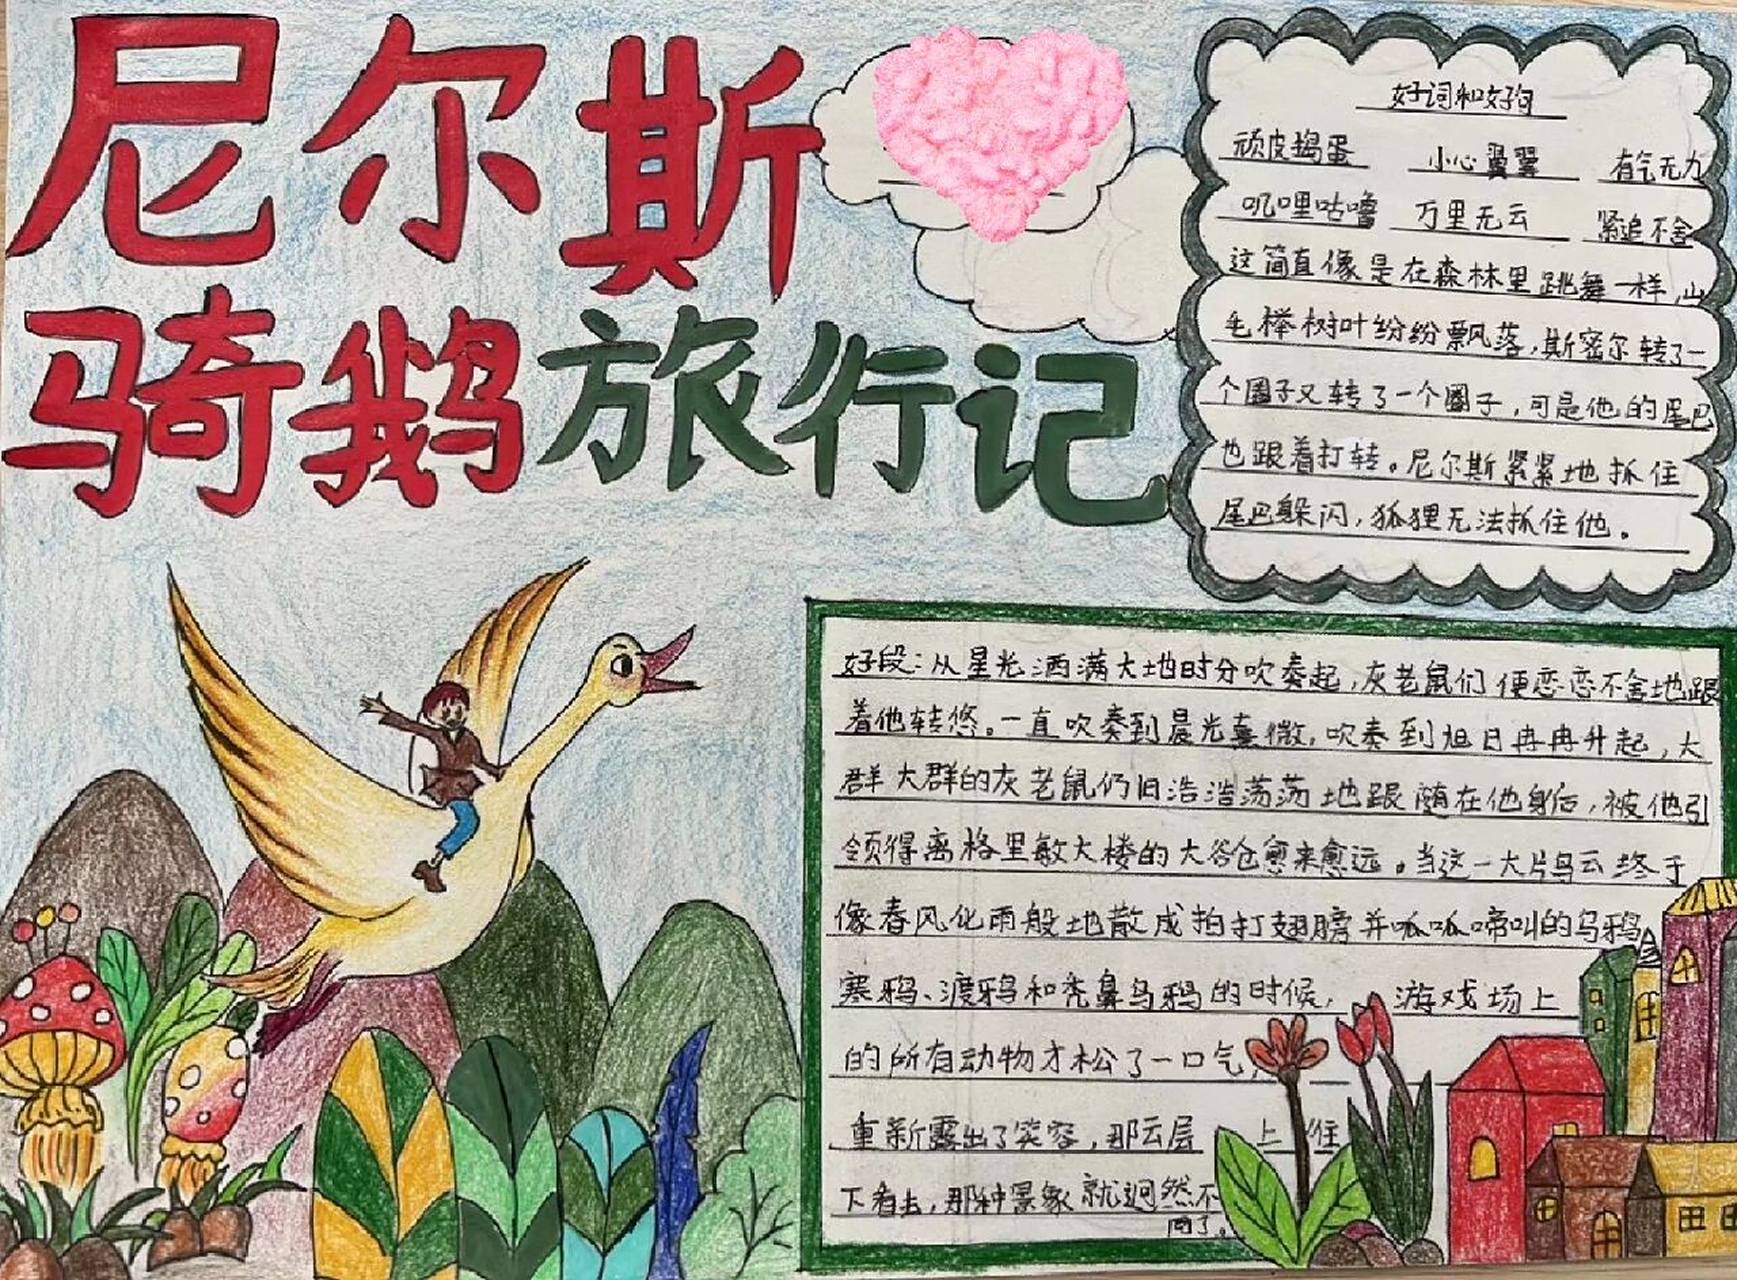 尼尔斯
骑鹅旅行记
好词和好句
顽皮捣蛋 小心翼翼 有气无力
叽哩咕噜 万里无云 紧追不舍
这简直像是在森林里跳舞一样,山
毛榉树叶纷纷飘落,斯密尔转了一
个圈子又转了一个圈子,可是他的尾巴
也跟着打转。尼尔斯紧紧地抓住
尾巴躲闪,狐狸无法抓住他。
好段:从星光洒满大地时分吹奏起,灰老鼠们便恋恋不舍地跟
着他转悠。一直吹奏到晨光熹微,吹奏到旭日冉冉升起,大
群大群的灰老鼠仍旧浩浩荡荡地跟随在他身后,被他引
领得离格里敏大楼的大谷仓愈来愈远。当这一大片乌云终于
像春风化雨般地散成拍打翅膀并呱呱啼叫的乌鸦、
寒鸦、渡鸦和秃鼻乌鸦的时候, 游戏场上
的所有动物才松了一口气,
重新露出了笑容,那云层 上往
下看去,那种景象就迥然不
同了。